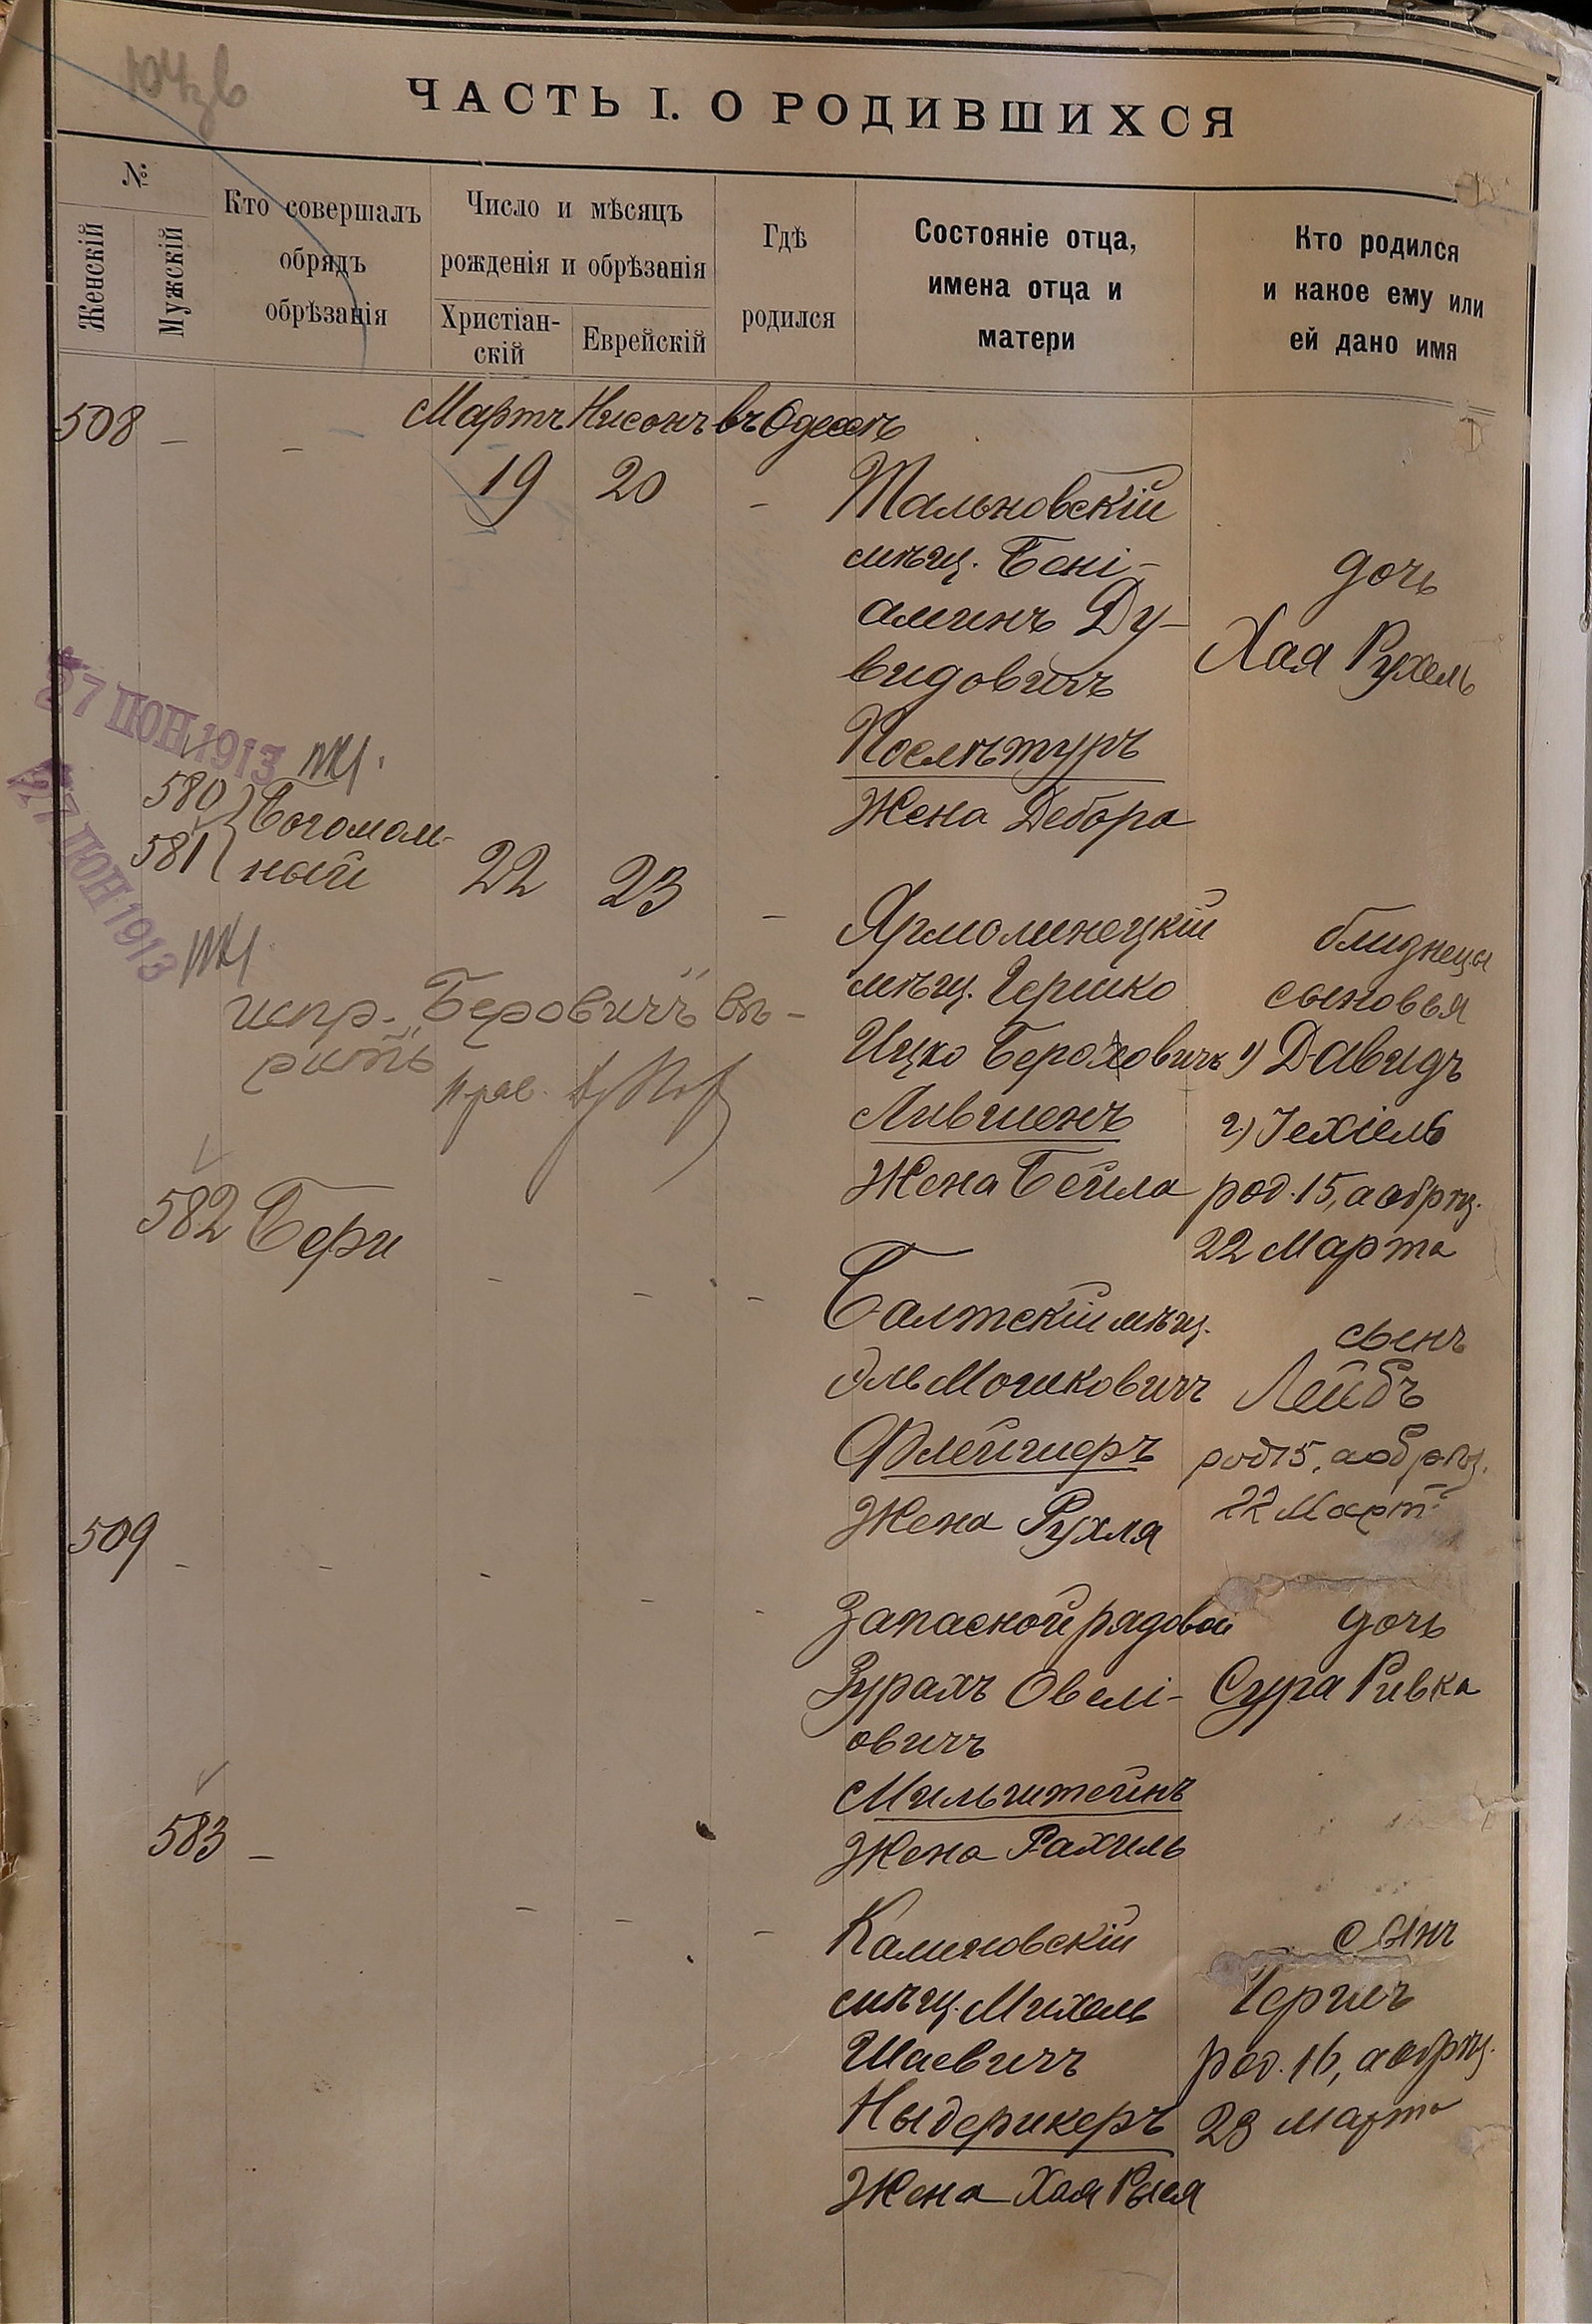 ЧАСТЬ I. О РОДИВШИХСЯ
№
Женскій
Мужскій
Кто совершалъ
обрядъ
обрѣзанія
Число и мѣсяцъ
рожденія и обрѣзанія
Христіан-
скій
Еврейскій
Гдѣ
родился
Состояніе отца,
имена отца и
матери
Кто родился
и какое ему или
ей дано имя
508 - - Мартъ Нисонъ въ Одессѣ
19 20 -
Тальновскій
мѣщ. Бені-
аминъ Ду-
видовичъ
Жена Дебора
дочь
Хая Рухель
27 ІЮН 1913
27 ІЮН 1913
580
581
Богомоль-
ный
22 23 -
Ярмолинецкій
мѣщ. Гершко
Ицко Бероховичъ
Лившенъ
Жена Бейла
близнецы
сыновья
1) Давидъ
2) Іехіель
род. 15, а обрѣз.
22 Марта
испр. „Беровичъ“ вѣ-
рить
582 Бери - - -
Балтскій мѣщ.
Эль Мошковичъ
Флейшеръ
Жена Рухля
сынъ
Лейбъ
род 15, а обрѣз.
22 Март
509 - - - - -
Запасной рядовой
Зурахъ Овелі-
овичъ
Мильштейнъ
Жена Рахиль
дочь
Сура Ривка
583 - - - -
Калиновскій
мѣщ. Михель
Шаевичъ
Ныдерикеръ
Жена Хая Рыся
сынъ
Гершъ
род. 16, а обрѣз.
23 Марта